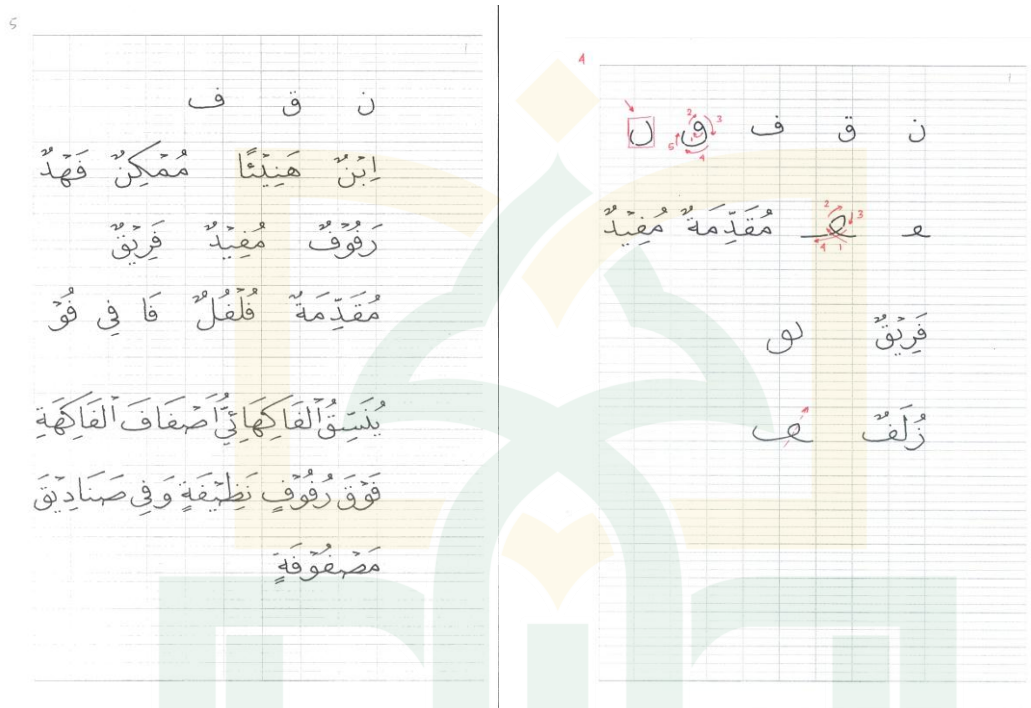 5
ن ق ف
اِبْنٌ هَنِيْئًا مُمْكِنٌ فَهْدٌ
رَفُوْفٌ مُفِيْدٌ فَرِيْقٌ
مُقَدِّمَةٌ فُلْفُلٌ فَا فِي فُوْ
يُنَسِقُ الْفَاكِهَانِيُّ أَصْفَافَ الْفَاكِهَةِ
فَوْقَ رُفُوْفٍ نَظِيْفَةٍ وَفِي صَنَادِيْقَ
مَصْفُوْفَةٍ
4
ن ق ف
2 3 4 5
مُقَدِّمَةٌ مُفِيْدٌ
2 3 4 1
فَرِيْقٌ
زُلَفٌ